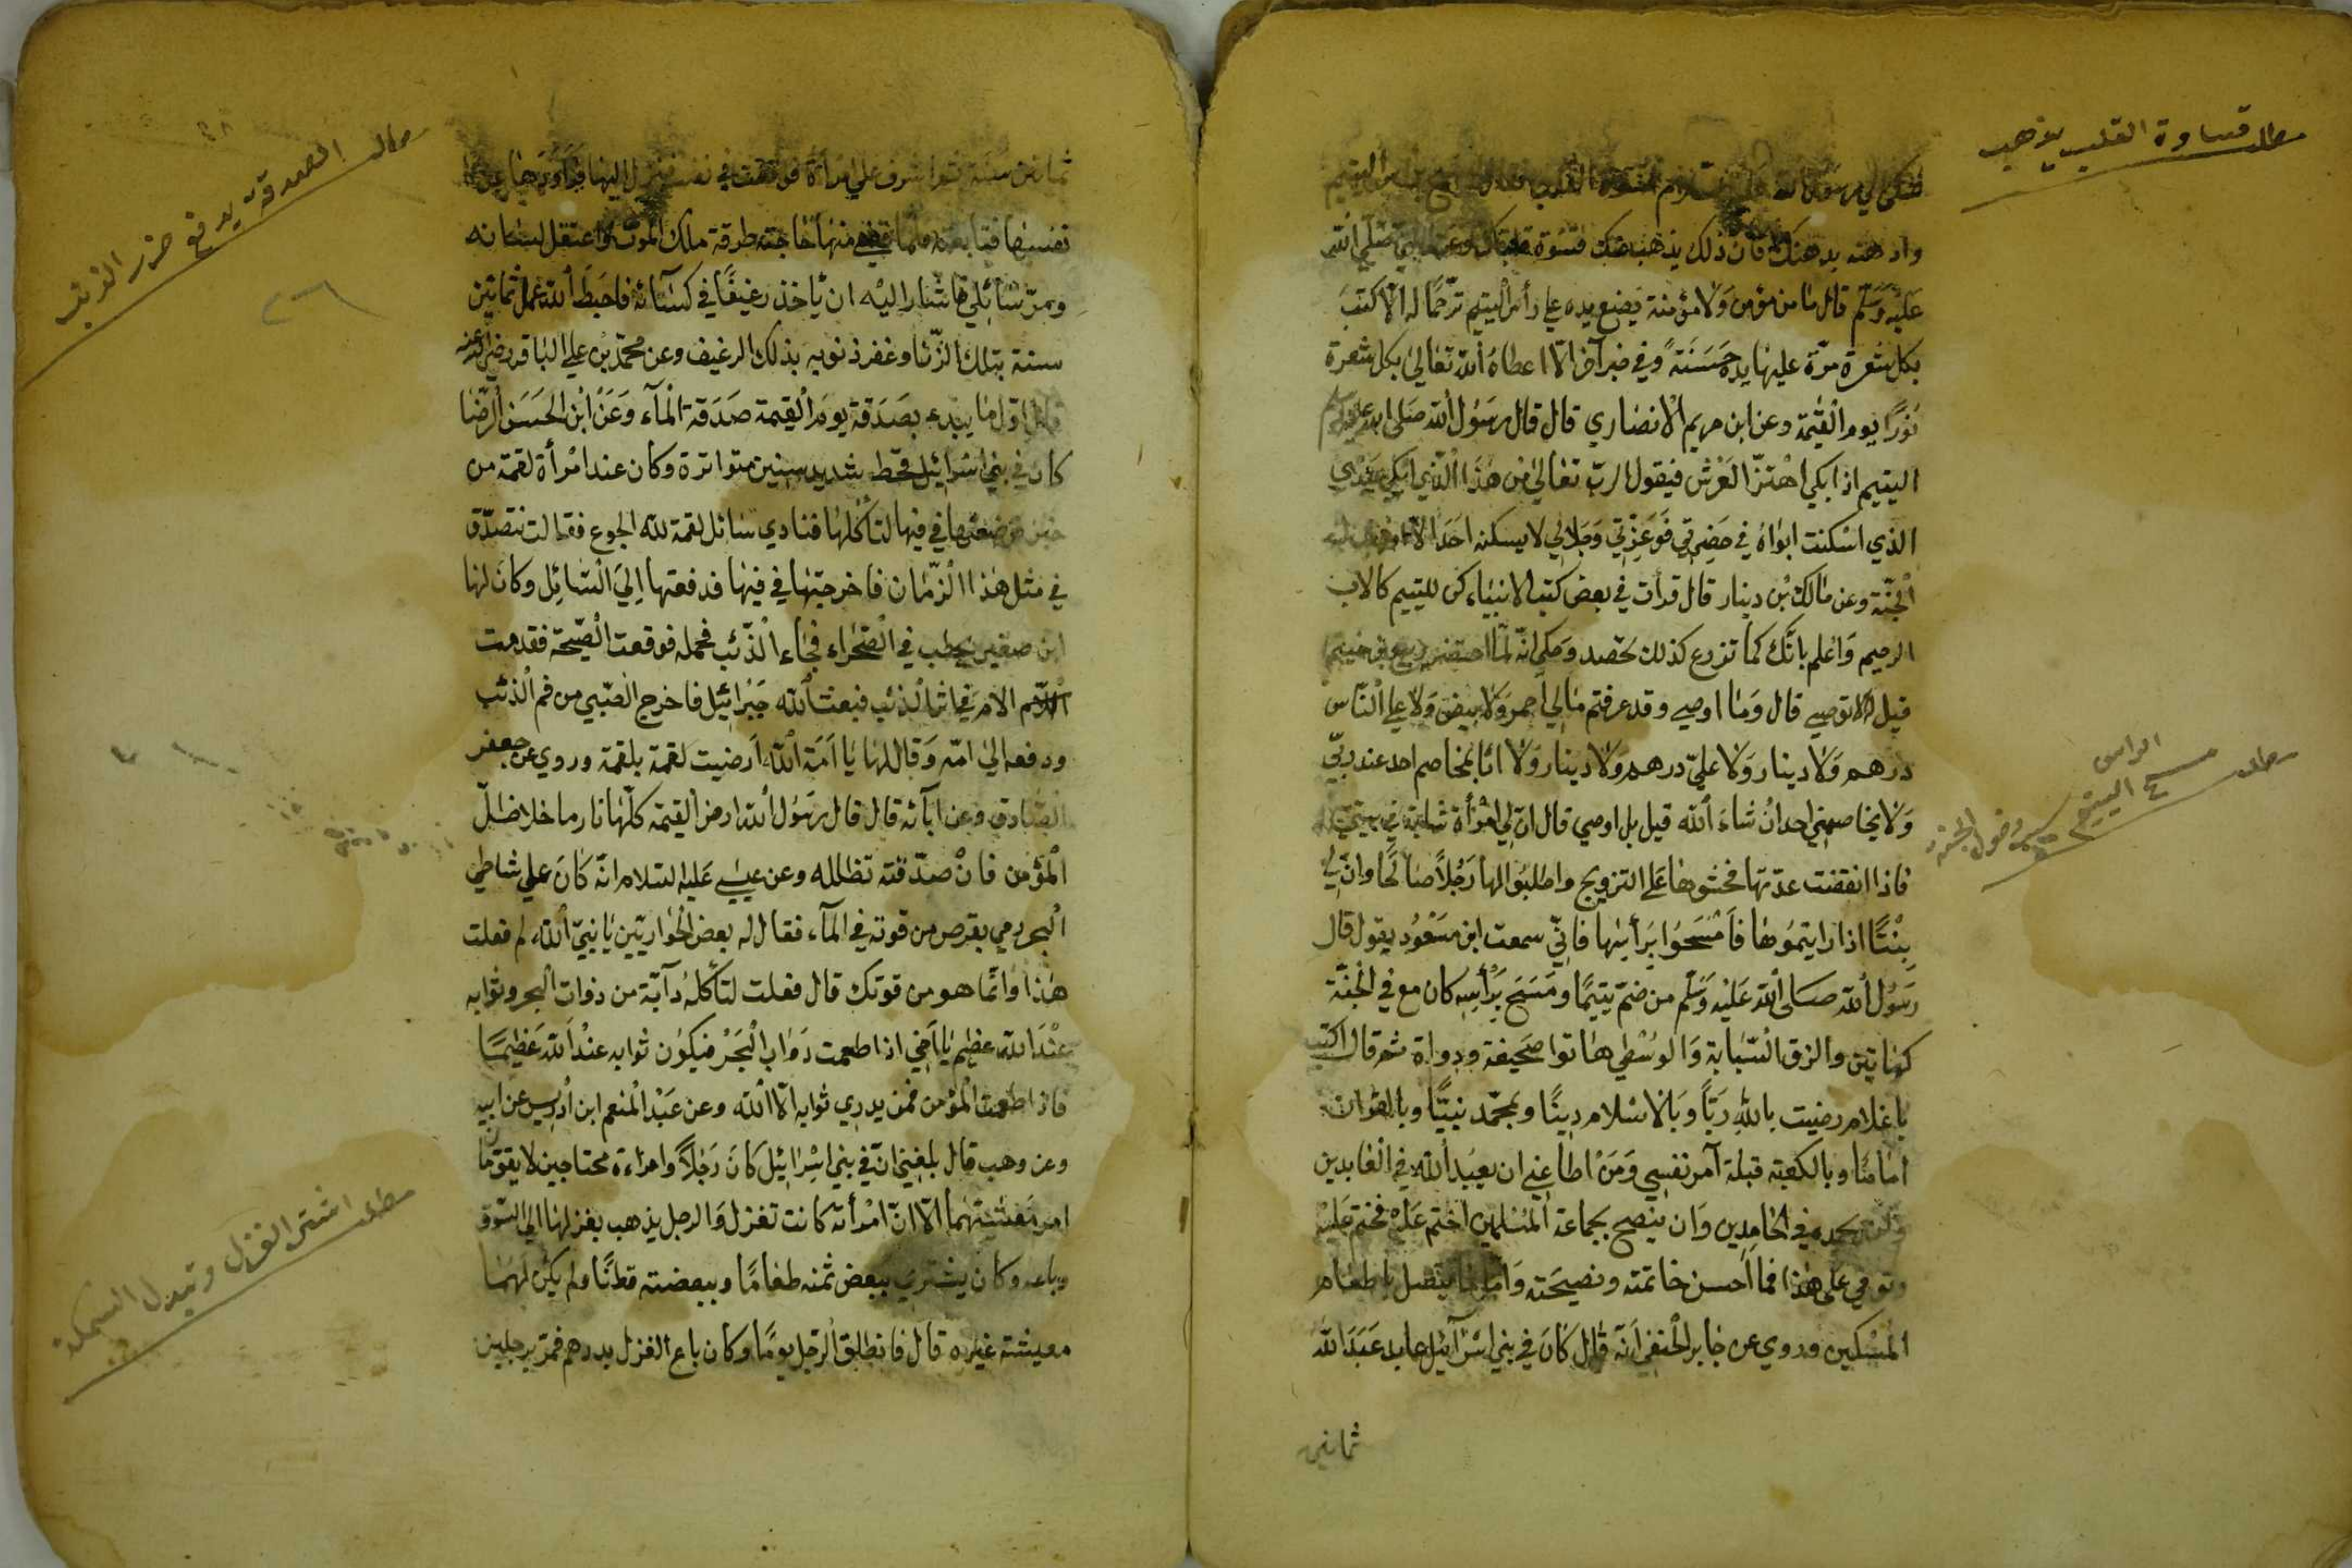 مطلب قساوة القلب يذهب
شكى الى رسول الله
وادهنه بدهنك فان ذلك يذهب عنك قسوة قلبك وعن النبي صَلّي الله
عَلَيْه وَسَلّم قال ما من مؤمن وَلا مؤمنة يَضع يده علي رأس اليتيم ترحّمًا له الّا كتبَ
بكل شعرة مرّة عليها يده حَسَنَةً وفي خبر آخر الّا اعطاهُ الله تعَالى بكل شعرة
نورًا يوم القيٰمة وعن ابن مريم الانصاري قال قال رسُول الله صَلى الله عليه وسلم
اليتيم اذا بكي اهْتزّ العَرْش فيقول الربّ تعَالي من هٰذَا الّذي ابكي عَبْدي
الذي اسْكنت ابواهُ في حضرتي فَوَعِزّتي وَجَلالي لا يسكنه احَد الّا
الجَنّة وعن مالك بْن دينار قال قرأت في بعض كتب الانبيَاء كن لليتيم كالاب
الرحيم وَاعْلم بانّك كما تزرع كذلك تحصد وَحكي انّه لمّا احتضر ربيع بن خيثم
قيل الا توصي قال وَما اوصي وقد عرفتم مالي احمر وَلا بيض وَلا علي النّاس
درهم وَلا دينار وَلا عليّ درهم وَلا دينار وَلا انا بمخاصم احد عند ربّي
وَلا يخاصمني احد انْ شاءَ الله قيل بل اوصي قال انّ لي امْرأة شابة
فاذا انقضت عدّتها فحثّوها عَلى التزويج واطلبُوا لها رَجُلاً صَالحًا وانّ لي
بِنْتًا اذا رايتمُوها فَامْسَحُوا بِرَأسِها فاني سمعت ابن مسْعُود يقول قال
رسُول الله صَلى الله عَلَيْه وَسَلّم من ضمّ يتيمًا ومَسَحَ بِرَأسِه كان مع في الجنّة
كهاتين والزق السّبابة وَالوُسْطي هاتوا صَحيفة ودواة ثم قال اكتب
يا غلام رضيت بالله رَبّاً وَبالاسْلام دينًا وبمحمّد نبيًّا وبالقرآن
امامًا وبالكعبة قبلة آمر نفسي وَمَنْ اطاعني ان يعبُد الله في العَابدين
ونحمده في الحَامدين وَان ينصح بجماعة المُسْلمين اختم عَليْه فختم عَليْه
وتوفي على هٰذا فما احسن خاتمته ونصيحَته وَامّا ما يتصل باطعام
المسْكين وروي عن جابر الحَنفي انّه قال كانَ في بني اسْرآئيل عابد عَبَدَ الله
ثمانين
مطلب مسح الراس اليتيم سبب دخول الجنة
ثمانين سنة ثم اشرف علي امرأة فوقعت في نفسه فنزل اليها
نفسها فتابعته فلما قضي منها حَاجته طرقه ملك الموت واعتقل لسَانه
ومرّ سَائل فاشَار اليْه ان يأخذ رغيفًا في كسَائه فاحبَط الله عمل ثمانين
سنة بتلك الزّنا وغفر ذنوبه بذلك الرغيف وعن محمّد بْن علي البَاقر رضي الله عنه
قال اوّل ما يبدء بصَدَقة يومَ القيمة صَدَقة المآء وَعَن ابن الحَسَن الرّضَا
كان في بني اسْرائيل قحط شديد سنين متواترة وكان عند امْرأة لقمة من
خبز فوضعتها في فيها لتأكُلها فنادي سائل لقمة لله الجوع فقالت نتصدّق
في مثل هٰذا الزّمَان فاخرجتها في فيها فدفعتها اِليَ السّائِل وكان لها
ابن صغير يحطب في الصّحْراء فجاء الذّئب فحمله فوقعت الصّيحة فقدمت
الام في اثر الذئب فبعث الله جَبْرائيل فاخرج الصّبي من فم الذئب
ودفعه الي امّه وَقال لها يا اَمَة الله اَرضيت لقمة بلقمة وروي عن جعفر
الصّادق وعن آبائه قال قال رسُول الله ارض القيمة كلّها نار ما خلا ظلّ
المؤمن فانْ صدّقته تظلله وعن عيسٰي عَليه السّلام انّه كانَ علي شاطي
البحر رمي بقرص من قوته في المآء فقال له بعض الحواريّين يا نبيّ الله لم فعلت
هٰذا وَانّما هو من قوتك قال فعلت لتأكله دآبّة من دوات البحر وثوابه
عنْدَ الله عظيم يا اَخي اذا طعمت دَوَاب البَحْر فيكون ثوابه عنْد الله عَظيمًا
فاذا طعمت المؤمن فمن يدري ثوابه الّا الله وعن عَبْد المنعم ابن ادْريس عن ابيه
وعن وهب قال بلغني انّ في بني اسْرائيل كانَ رَجُلاً وامراءة محتاجين لا يقوّمان
امر مَعيشتهما الّا انّ امْرأته كانت تغزل وَالرجل يذهب بغزلها الي السّوق
وباعه وكان يشتري ببعض ثمنه طعامًا وببعضه قطنًا ولم يكن لهما
معيشة غيره قال فانطلق الرّجل يومًا وكان باع الغزل بدرهم فمرّ برجلين
مطلب الصدقة يدفع ضرر الذئب
مطلب اشتري الغزل وتبدل السمكة